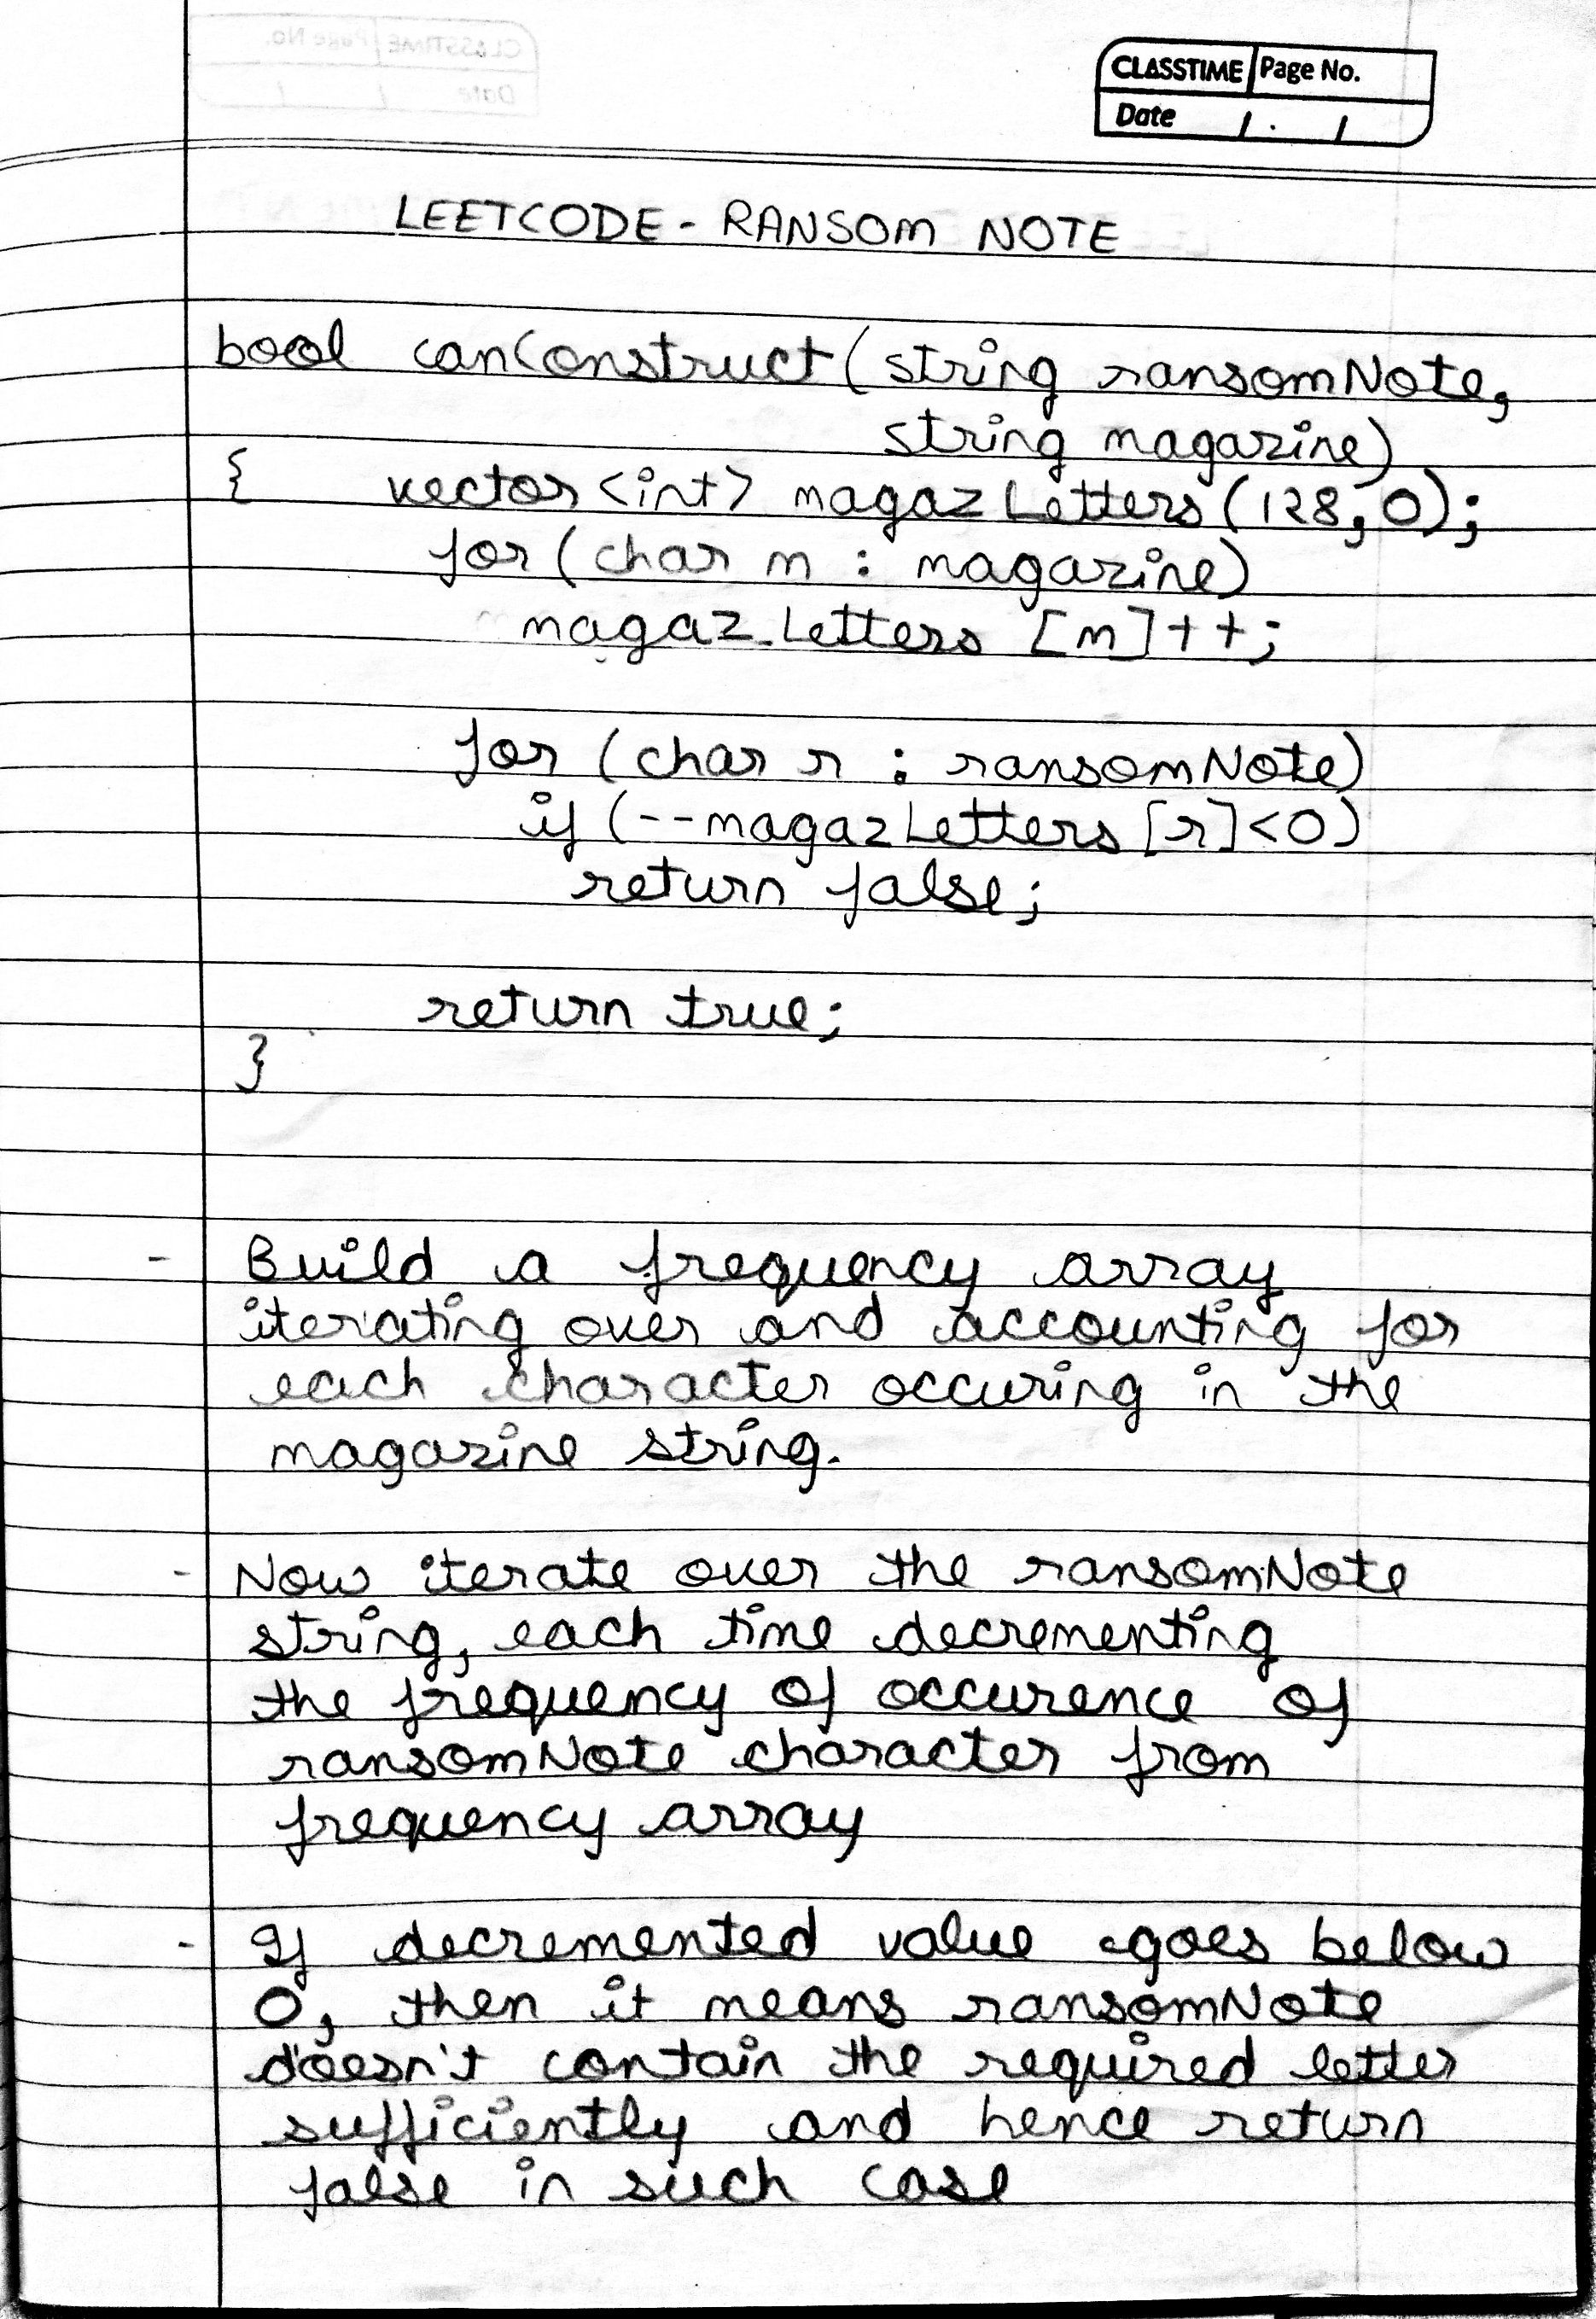 CLASSTIME Page No.
Date / . /
LEETCODE - RANSOM NOTE
bool canConstruct(string ransomNote,
string magazine)
{ vector<int> magazLetters(128,0);
for(char m : magazine)
magaz_Letters [m]++;
for (char r : ransomNote)
if (--magazLetters[r]<0)
return false;
return true;
}
- Build a frequency array
iterating over and accounting for
each character occuring in the
magazine string.
- Now iterate over the ransomNote
string, each time decrementing
the frequency of occurence of
ransomNote character from
frequency array
- If decremented value goes below
0, then it means ransomNote
doesn't contain the required letter
sufficiently and hence return
false in such case